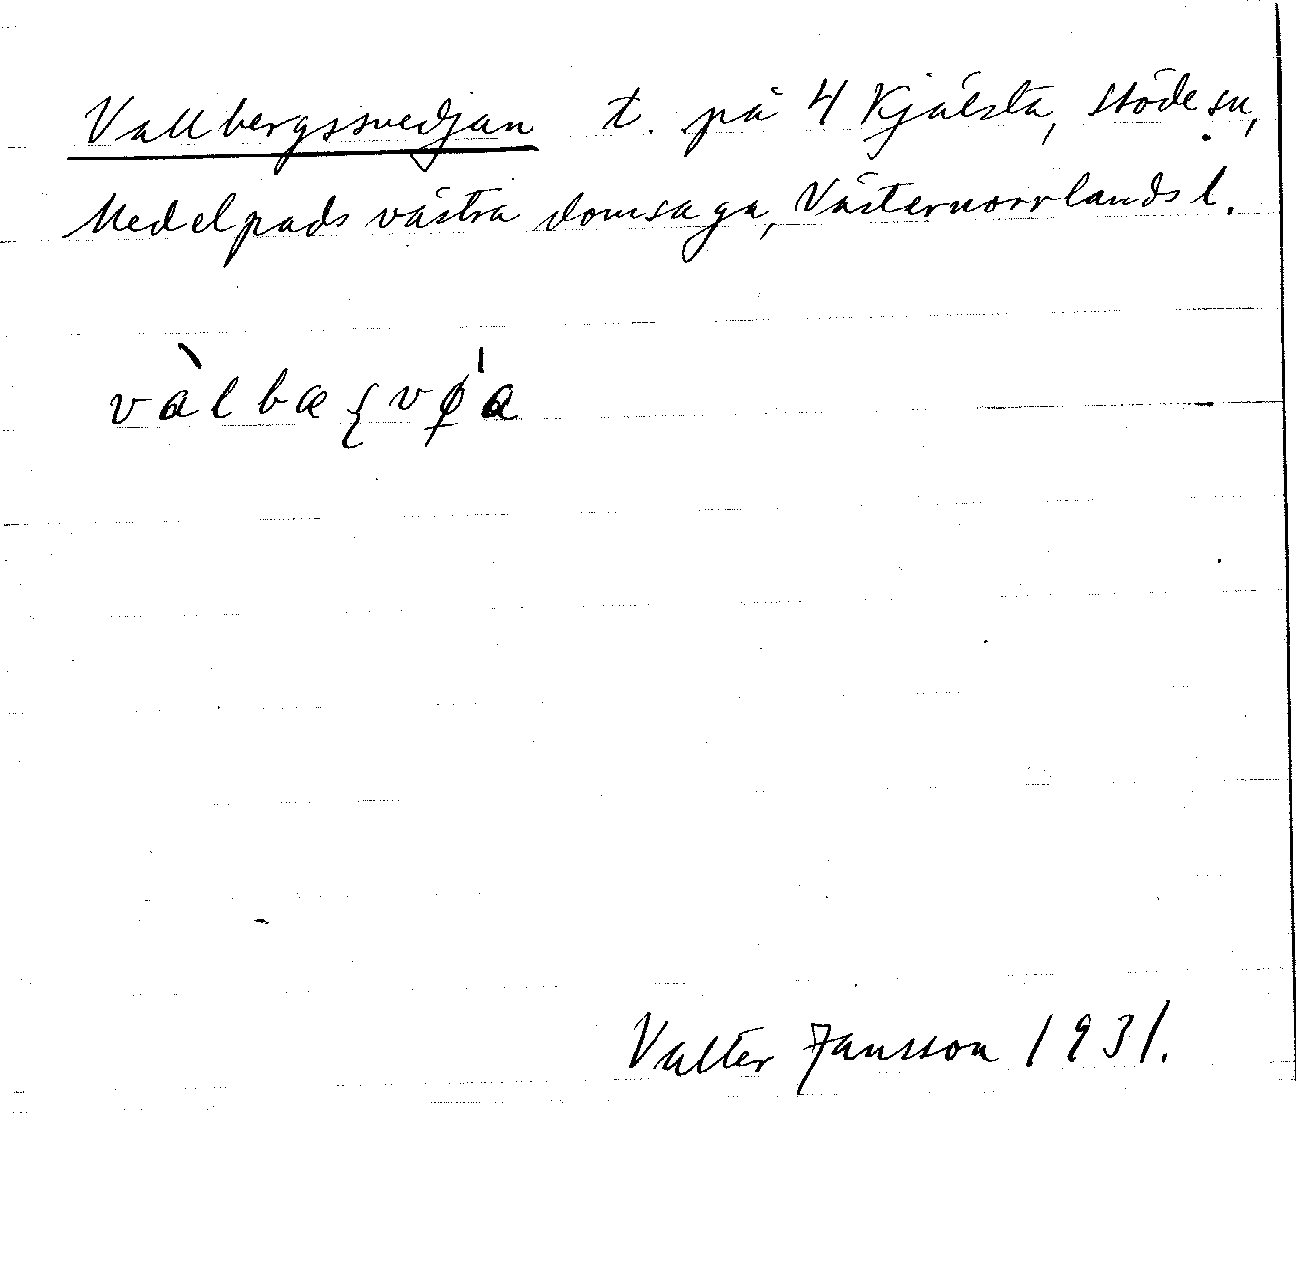 Vallbergssvedjan t. på 4 Kjälsta, Stöde sn,
Medelpads västra domsaga, Västernorrlands l.
Valter Jansson 1931.